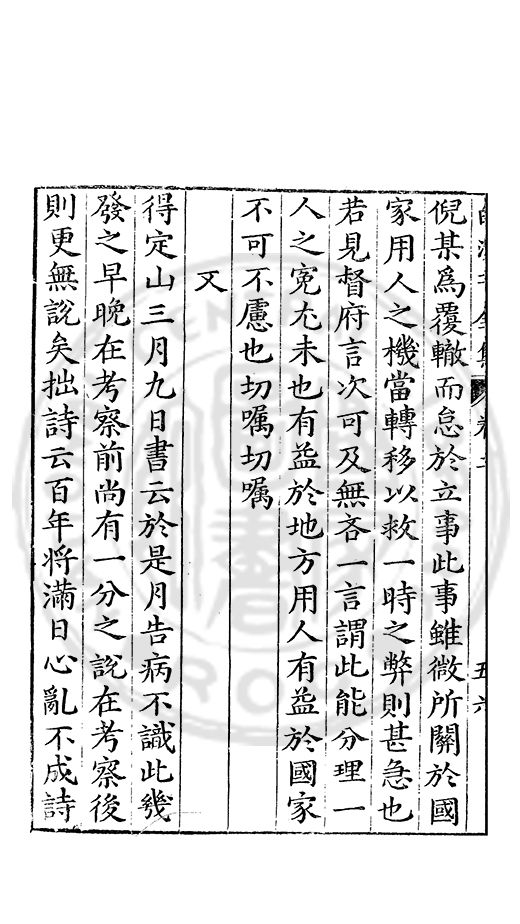 倪某爲覆轍而怠於立事此事雖微所關於國
家用人之機當轉移以救一時之弊則甚急也
若見督府言次可及無吝一言謂此能分理一
人之寃尢未也有益於地方用人有益於國家
不可不慮也切囑切囑
又
得定山三月九日書云於是月告病不識此幾
發之早晚在考察前尚有一分之說在考察後
則更無說矣拙詩云百年將滿日心亂不成詩